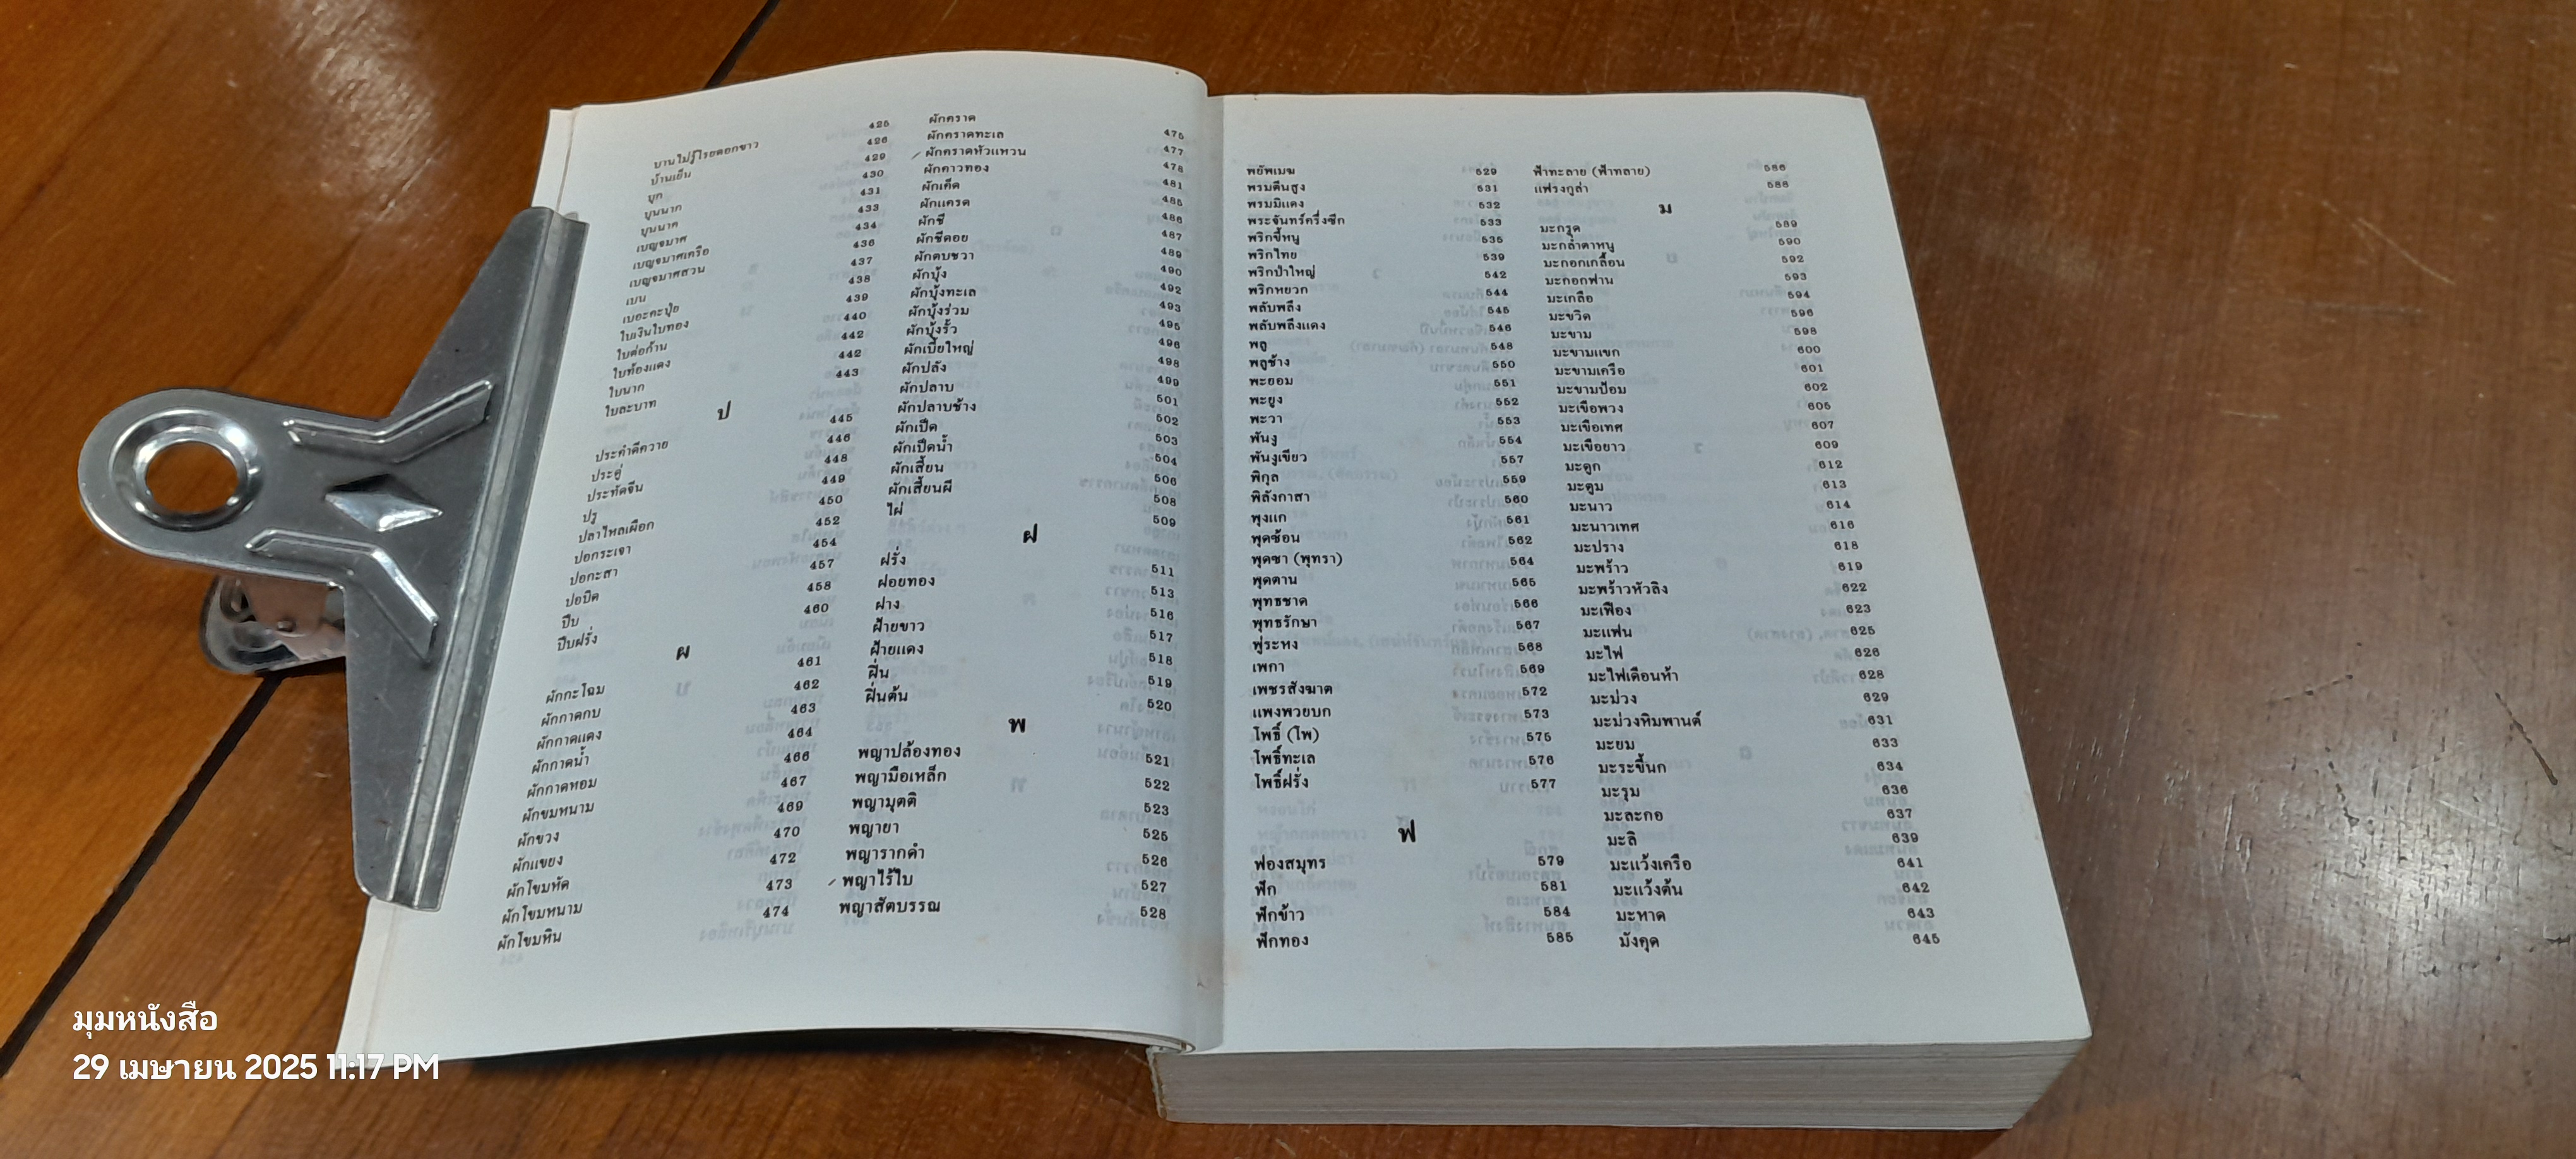 บานไม่รู้โรยดอกขาว 425
บ้านเย็น 426
บุก 429
บุนนาก 430
บุนนาค 431
เบญจมาศ 433
เบญจมาศเครือ 434
เบญจมาศสวน 436
เบน 437
เบอะคะปุ่ย 438
ใบเงินใบทอง 439
ใบต่อก้าน 440
ใบท้องแดง 442
ใบนาก 442
ใบละบาท 443
ป
ประคำดีควาย 445
ประดู่ 446
ประทัดจีน 448
ปรู 449
ปลาไหลเผือก 450
ปอกระเจา 452
ปอกะสา 454
ปอบิด 457
ปีบ 458
ปีบฝรั่ง 460
ผ
ผักกะโฉม 461
ผักกาดกบ 462
ผักกาดแดง 463
ผักกาดน้ำ 464
ผักกาดหอม 466
ผักขมหนาม 467
ผักขวง 469
ผักแขยง 470
ผักโขมหัด 472
ผักโขมหนาม 473
ผักโขมหิน 474
ผักคราด 475
ผักคราดทะเล 477
ผักคราดหัวแหวน 478
ผักคาวทอง 481
ผักเค็ด 485
ผักแครด 486
ผักชี 487
ผักชีดอย 489
ผักตบชวา 490
ผักบุ้ง 492
ผักบุ้งทะเล 493
ผักบุ้งร่วม 495
ผักบุ้งรั้ว 496
ผักเบี้ยใหญ่ 498
ผักปลัง 499
ผักปลาบ 501
ผักปลาบช้าง 502
ผักเป็ด 503
ผักเป็ดน้ำ 504
ผักเสี้ยน 506
ผักเสี้ยนผี 508
ไผ่ 509
ฝ
ฝรั่ง 511
ฝอยทอง 513
ฝาง 516
ฝ้ายขาว 517
ฝ้ายแดง 518
ฝิ่น 519
ฝิ่นต้น 520
พ
พญาปล้องทอง 521
พญามือเหล็ก 522
พญามุตติ 523
พญายา 525
พญารากดำ 526
พญาไร้ใบ 527
พญาสัตบรรณ 528
พยัพเมฆ 529
พรมตีนสูง 531
พรมมิแดง 532
พระจันทร์ครึ่งซีก 533
พริกขี้หนู 535
พริกไทย 539
พริกป่าใหญ่ 542
พริกหยวก 544
พลับพลึง 545
พลับพลึงแดง 546
พลู 548
พลูช้าง 550
พะยอม 551
พะยูง 552
พะวา 553
พันงู 554
พันงูเขียว 557
พิกุล 559
พิลังกาสา 560
พุงแก 561
พุดซ้อน 562
พุดซา (พุทรา) 564
พุดตาน 565
พุทธชาด 566
พุทธรักษา 567
พู่ระหง 568
เพกา 569
เพชรสังฆาต 572
แพงพวยบก 573
โพธิ์ (โพ) 575
โพธิ์ทะเล 576
โพธิ์ฝรั่ง 577
ฟ
ฟองสมุทร 579
ฟัก 581
ฟักข้าว 584
ฟักทอง 585
ฟ้าทะลาย (ฟ้าทลาย) 586
แฟรงกูล่า 588
ม
มะกรูด 589
มะกล่ำตาหนู 590
มะกอกเกลื้อน 592
มะกอกฟาน 593
มะเกลือ 594
มะขวิด 596
มะขาม 598
มะขามแขก 600
มะขามเครือ 601
มะขามป้อม 602
มะเขือพวง 605
มะเขือเทศ 607
มะเขือยาว 609
มะดูก 612
มะตูม 613
มะนาว 614
มะนาวเทศ 616
มะปราง 618
มะพร้าว 619
มะพร้าวหัวลิง 622
มะเฟือง 623
มะแฟน 625
มะไฟ 626
มะไฟเดือนห้า 628
มะม่วง 629
มะม่วงหิมพานต์ 631
มะยม 633
มะระขี้นก 634
มะรุม 636
มะละกอ 637
มะลิ 639
มะแว้งเครือ 641
มะแว้งต้น 642
มะหาด 643
มังคุด 645
มุมหนังสือ
29 เมษายน 2025 11:17 PM